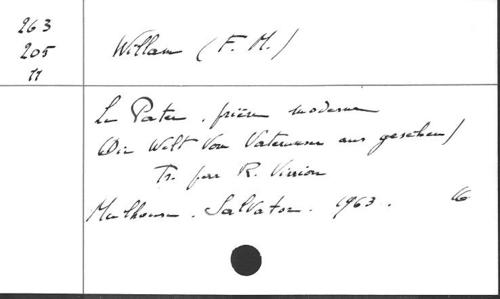 263
205
11
Willam (F. M.)
Le Pater, prière moderne
(Die Welt vom Vaterunser aus gesehen)
Tr. par R. Virrion
Mulhouse. Salvator. 1963. 16